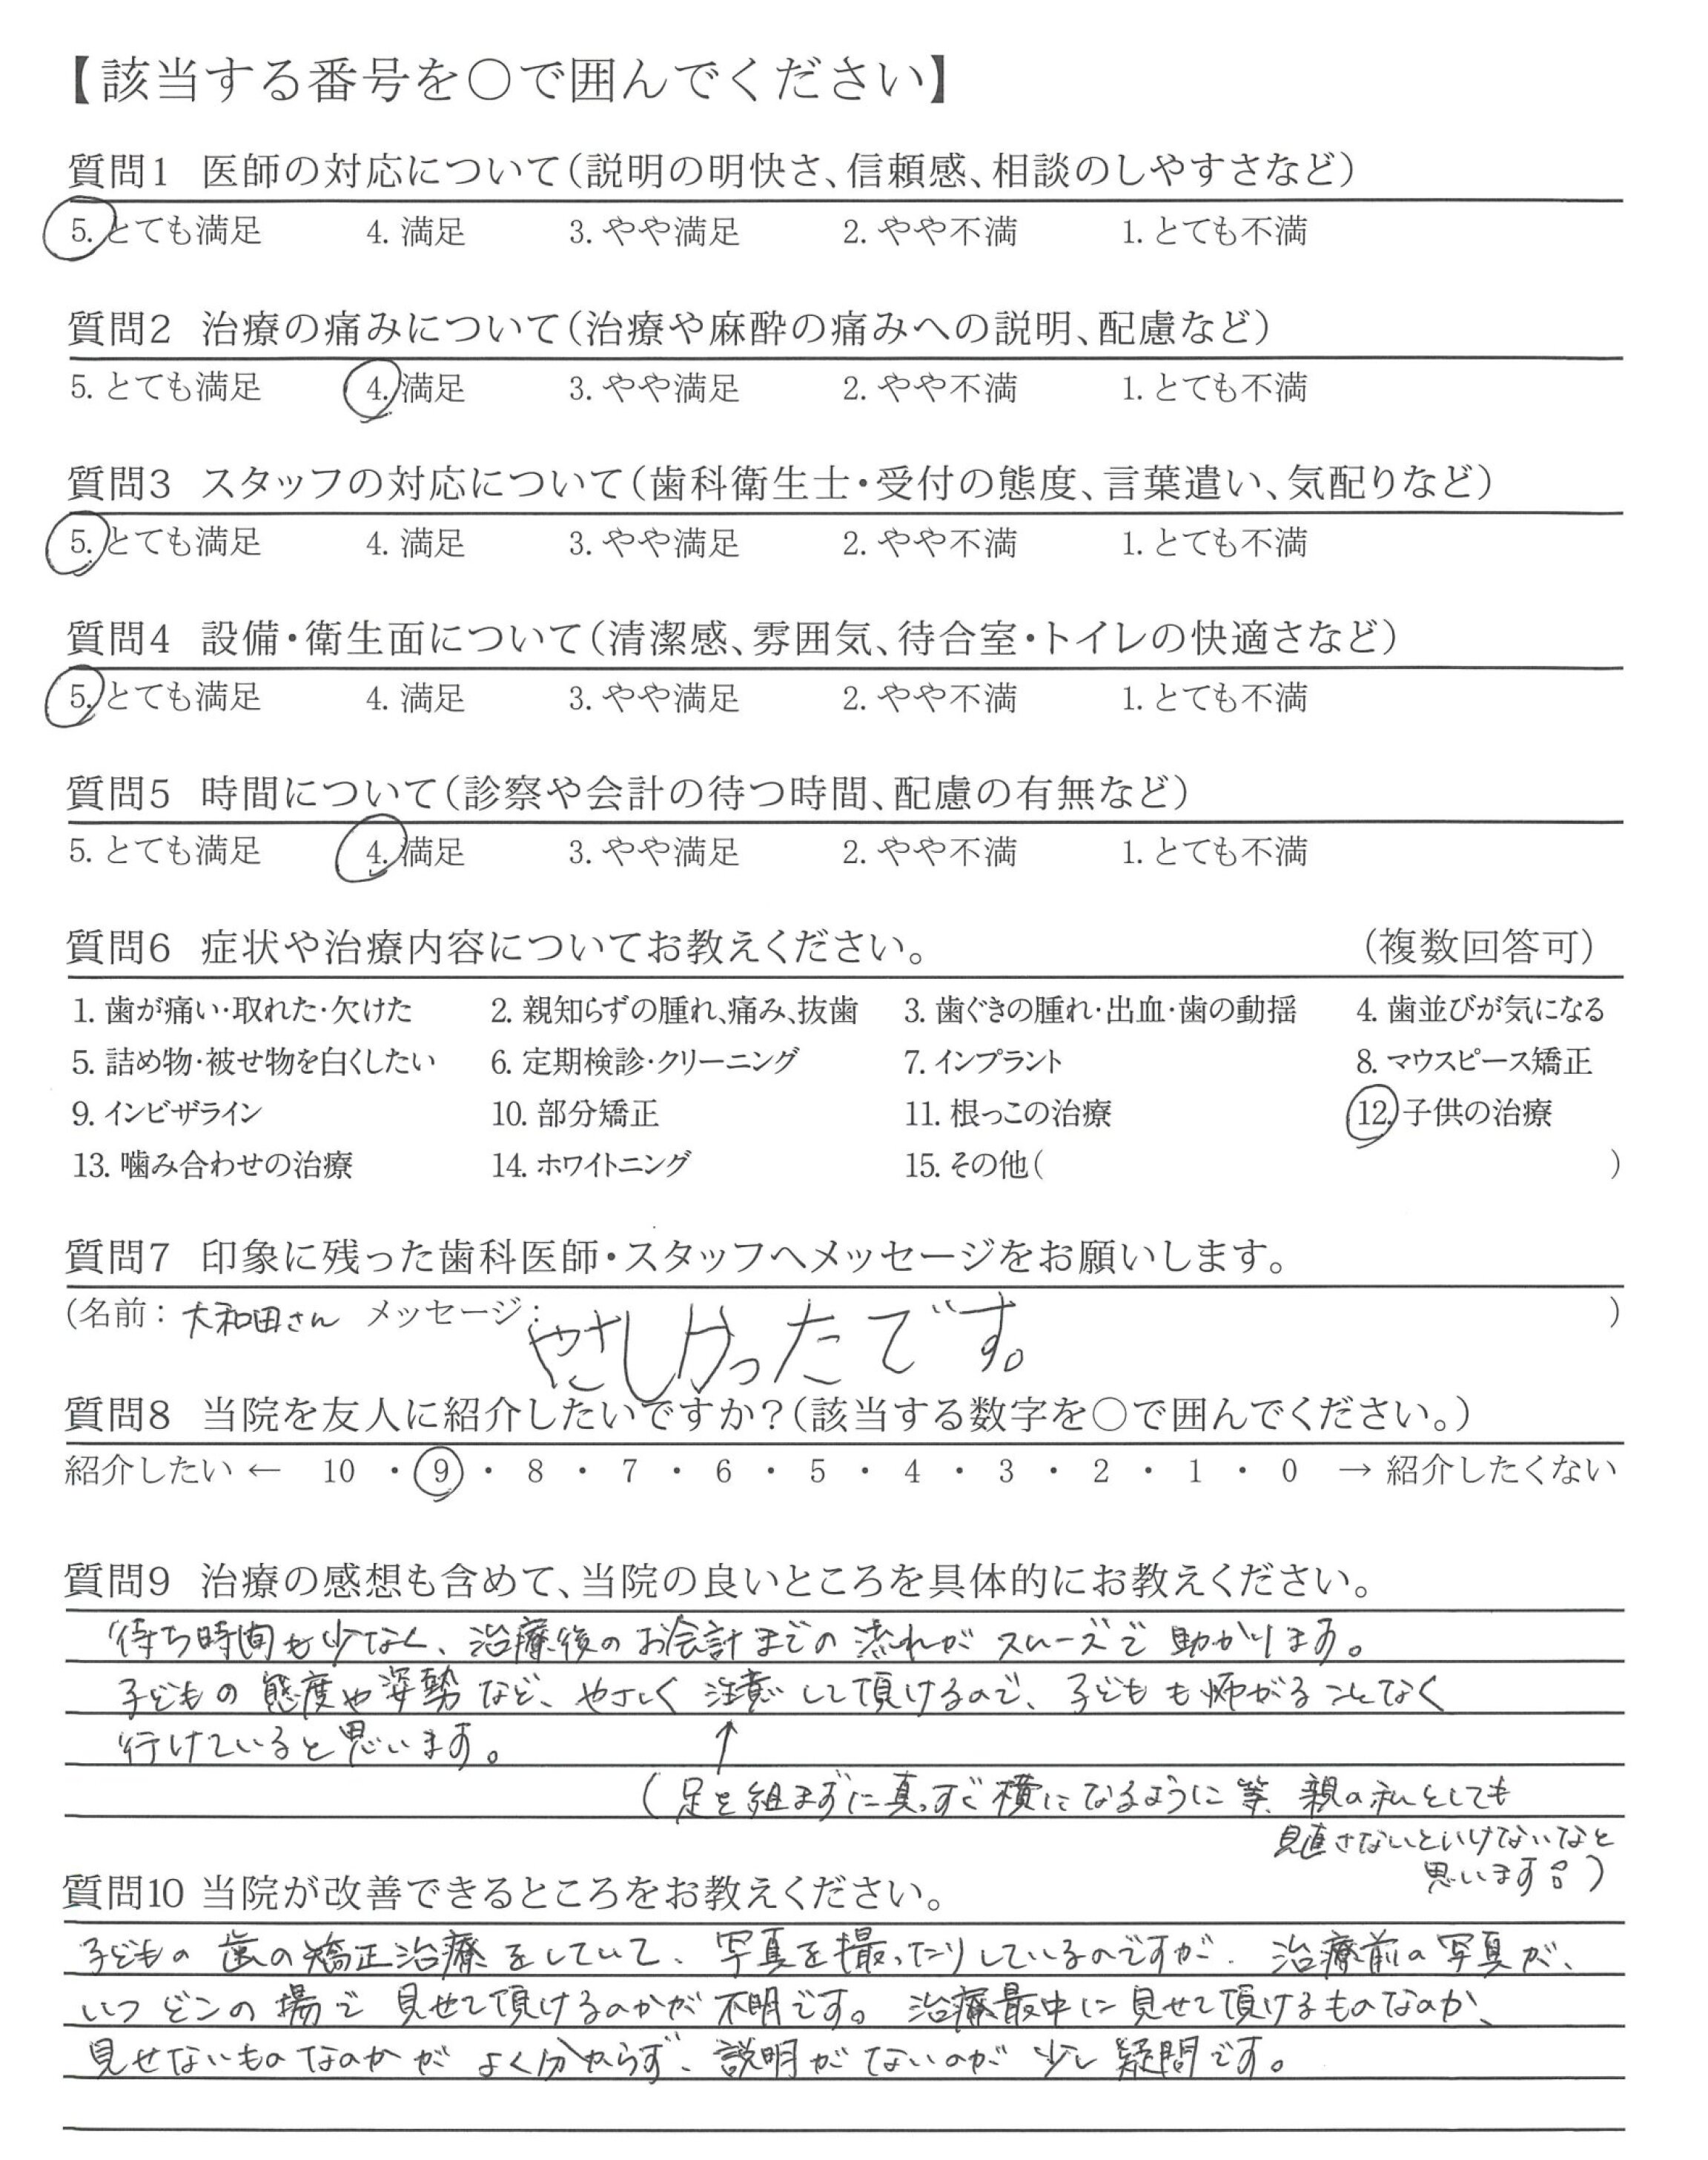 【該当する番号を○で囲んでください】
質問1 医師の対応について(説明の明快さ、信頼感、相談のしやすさなど)
5. とても満足 4. 満足 3. やや満足 2. やや不満 1. とても不満
質問2 治療の痛みについて(治療や麻酔の痛みへの説明、配慮など)
5. とても満足 4. 満足 3. やや満足 2. やや不満 1. とても不満
質問3 スタッフの対応について(歯科衛生士・受付の態度、言葉遣い、気配りなど)
5. とても満足 4. 満足 3. やや満足 2. やや不満 1. とても不満
質問4 設備・衛生面について(清潔感、雰囲気、待合室・トイレの快適さなど)
5. とても満足 4. 満足 3. やや満足 2. やや不満 1. とても不満
質問5 時間について(診察や会計の待つ時間、配慮の有無など)
5. とても満足 4. 満足 3. やや満足 2. やや不満 1. とても不満
質問6 症状や治療内容についてお教えください。 (複数回答可)
1. 歯が痛い・取れた・欠けた 2. 親知らずの腫れ、痛み、抜歯 3. 歯ぐきの腫れ・出血・歯の動揺 4. 歯並びが気になる
5. 詰め物・被せ物を白くしたい 6. 定期検診・クリーニング 7. インプラント 8. マウスピース矯正
9. インビザライン 10. 部分矯正 11. 根っこの治療 12. 子供の治療
13. 噛み合わせの治療 14. ホワイトニング 15. その他( )
質問7 印象に残った歯科医師・スタッフへメッセージをお願いします。
(名前：大和田さん メッセージ：やさしかったです。 )
質問8 当院を友人に紹介したいですか？(該当する数字を○で囲んでください。)
紹介したい ← 10 ・ 9 ・ 8 ・ 7 ・ 6 ・ 5 ・ 4 ・ 3 ・ 2 ・ 1 ・ 0 → 紹介したくない
質問9 治療の感想も含めて、当院の良いところを具体的にお教えください。
待ち時間も少なく、治療後のお会計までの流れがスムーズで助かります。
子どもの態度や姿勢など、やさしく注意して頂けるので、子どもも怖がることなく
行けていると思います。 ↑
(足を組まずに真っすぐ横になるように等、親の私としても
見直さないといけないなと
思います。)
質問10 当院が改善できるところをお教えください。
子どもの歯の矯正治療をしていて、写真を撮ったりしているのですが、治療前の写真が、
いつどこの場で見せて頂けるのかが不明です。治療最中に見せて頂けるものなのか、
見せないものなのかがよく分からず、説明がないのが少し疑問です。